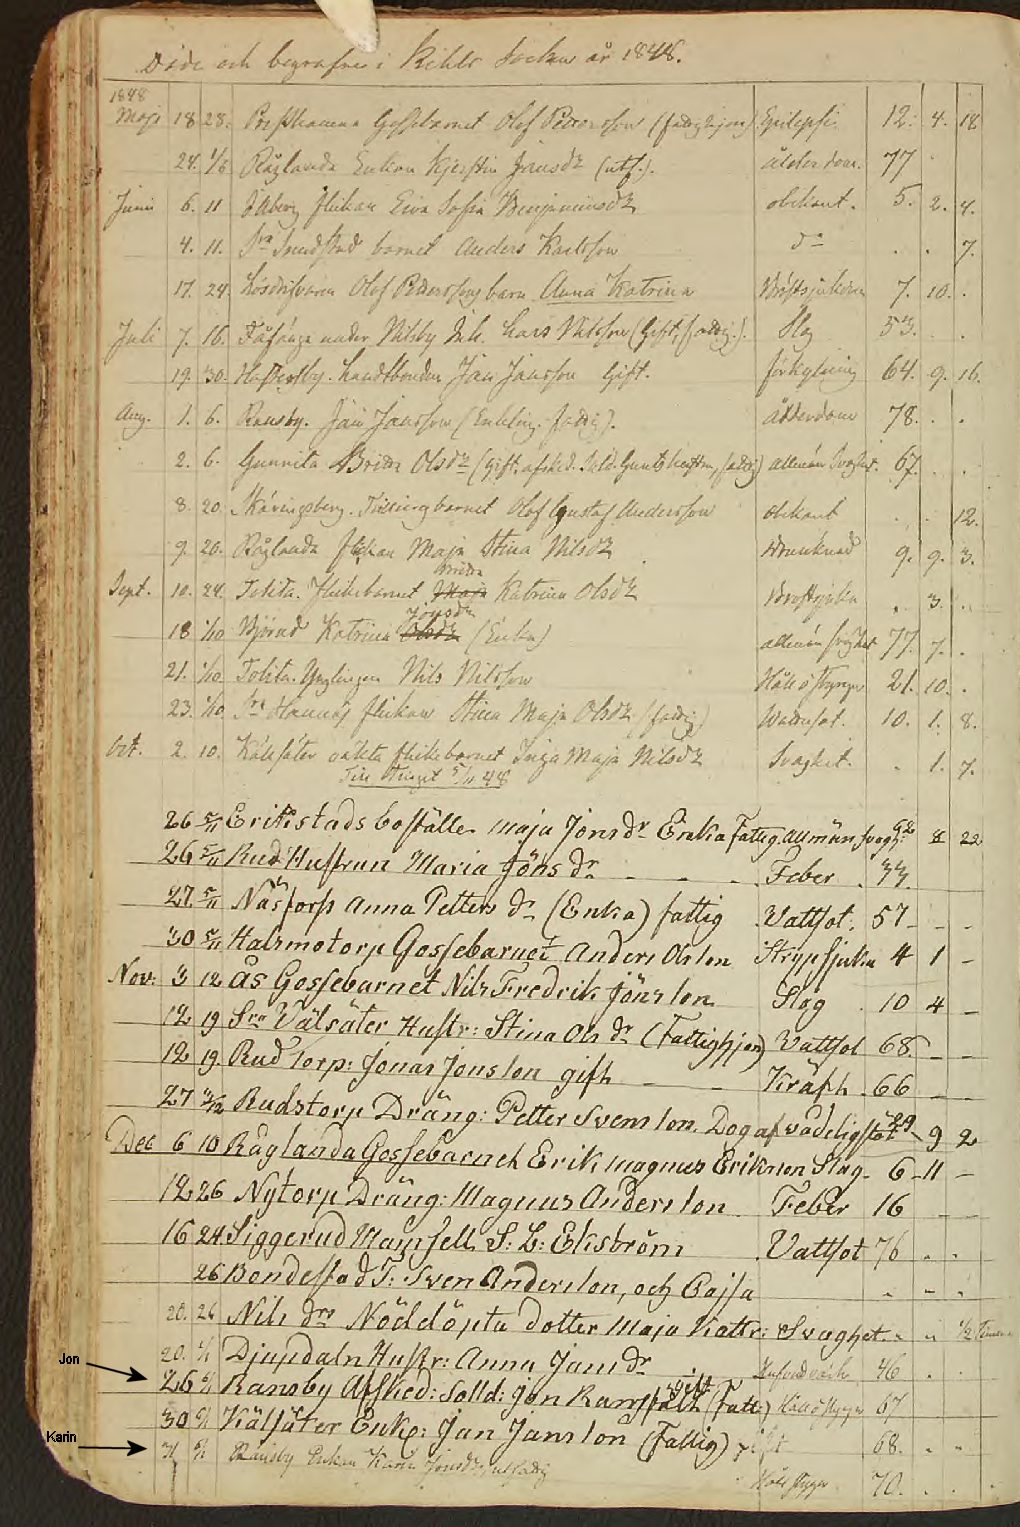 Döde och begrafne i Kihls Socken år 1848.
1848
Maji 18 28. Gossebarnet Olof Pettersson (fattighjon) Epilepsi. 12. 4. 18
24. 1/6 Råglanda Enkan Kjerstin Jonsdr (utf.). ålderdom. 77
Junii 6. 11 flickan Eva Sofia Benjaminsdr obekant. 5. 2. 4.
4. 11. Sra barnet Anders Karlsson do . . 7.
17. 24. Olof Petterssons barn Anna Katrina Bröstsjukdom 7. 10. .
Juli 7. 16. under Nilsby Inh. Lars Nilsson (Gift, fattig.). Slag 53. . .
19. 30. Landtbonden Jan Jansson Gift. förkylning 64. 9. 16.
Aug. 1. 6. Ransby. Jan Jansson (Enkling. fattig). ålderdom 78. . .
2. 6. Gunnita Britta Olsdr (Gift. afsked. Sold. fattig) allmän svaghet. 67. . .
8. 20. Skäringsberg. Tvillingbarnet Olof Gustaf Andersson obekant . . 12.
9. 20. Råglanda flickan Maja Stina Nilsdr drunknad 9. 9. 3.
Britta
Sept. 10. 24. Tolita. flickebarnet Maja Katrina Olsdr Bröstsjuka . 3. .
Jonsdr
18 1/10 Björud Katrina Olsdr (Enka) allmän svaghet 77. 7. .
21. 1/10. Tolita. Ynglingen Nils Nilsson Håll o styng 21. 10. .
23. 1/10. Sra Hannäs flickan Stina Maja Olsdr (fattig) Wattusot. 10. 1. 8.
Oct. 2. 10. Kälsäter oäkta flickebarnet Inga Maja Nilsdr Svaghet. . 1. 7.
Till Tinget 5/11 48
26 5/11 Erikstads boställe Maja Jons dr Enka Fattig. Allmän svagh: 62 8 22
26 5/11 Rud Hustrun Maria Jöns dr - - - Feber . 33.
27. 5/11 Näs torp Anna Petters dr (Enka) fattig Vattsot. 57 - - -
30 5/11 Halsmotorp Gossebarnet Anders Olsson Strypsjuka 4 1 -
Nov: 3 12 Ås Gossebarnet Nils Fredrik Jönsson Slag . 10 4 -
12 19 Sra Välsäter Hustr: Stina Ols dr (Fattighjon) Vattsot 68. - -
12 19. Rud Torp: Jonas Jonsson gift - - Kräft . 66 - -
27 3/12 Rudstorp Dräng: Petter Svensson. Dog af vådeligstöt 29 9 2
Dec 6 10 Råglanda Gossebarnet Erik Magnus Erikson Slag. 6 - 11 -
12 26 Nytorp Dräng: Magnus Andersson Feber 16 - -
16 24 Siggerud Mamsell S: L: Ekström . Vattsot 76 . .
26 Bondestad T: Sven Andersson, och Cajsa . . .
20. 26 Nils drs Nöddöpta dotter Maja Kattr: Svaghet. - " 1/2 Timma
20. 1/1 Djupdaln Hustr: Anna Jans dr 46 . .
gift
Jon 26 1/1 Ransby Afsked: Solld: Jon Ramfält (Fatt:) Håll o styng 67
30 6/1 Kälsäter Enkl: Jan Jansson (Fattig) gift 68. . .
Karin 31 6/1 Ransby Enkan Karin Jonsdr utfattig Håll styng 70. . .